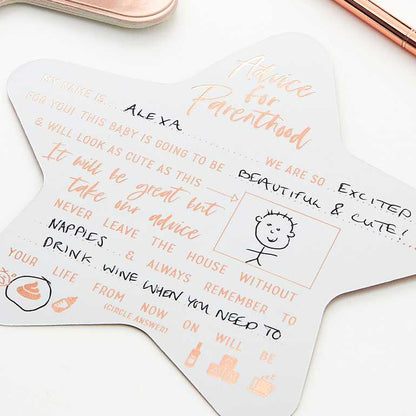 Advice
for
Parenthood
MY NAME IS... ALEXA WE ARE SO EXCITED
FOR YOU! THIS BABY IS GOING TO BE BEAUTIFUL & CUTE!
& WILL LOOK AS CUTE AS THIS
It will be great but
take our advice
NEVER LEAVE THE HOUSE WITHOUT
NAPPIES & ALWAYS REMEMBER TO
DRINK WINE WHEN YOU NEED TO
YOUR LIFE FROM NOW ON WILL BE
(CIRCLE ANSWER)